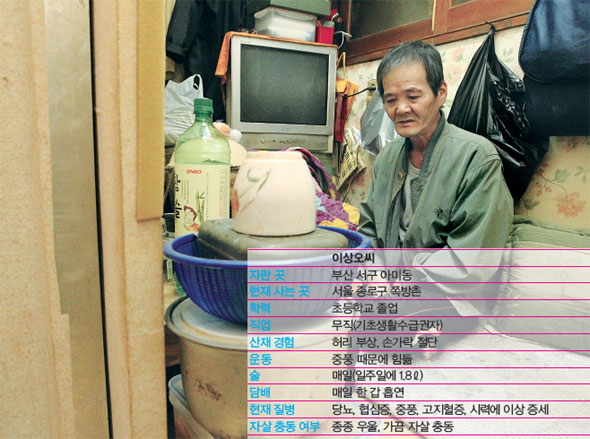 JINRO
이상오씨
자란 곳 부산 서구 아미동
현재 사는 곳 서울 종로구 쪽방촌
학력 초등학교 졸업
직업 무직(기초생활수급권자)
산재 경험 허리 부상, 손가락 절단
운동 중풍 때문에 힘듦
술 매일(일주일에 1.8ℓ)
담배 매일 한 갑 흡연
현재 질병 당뇨, 협심증, 중풍, 고지혈증, 시력에 이상 증세
자살 충동 여부 종종 우울, 가끔 자살 충동